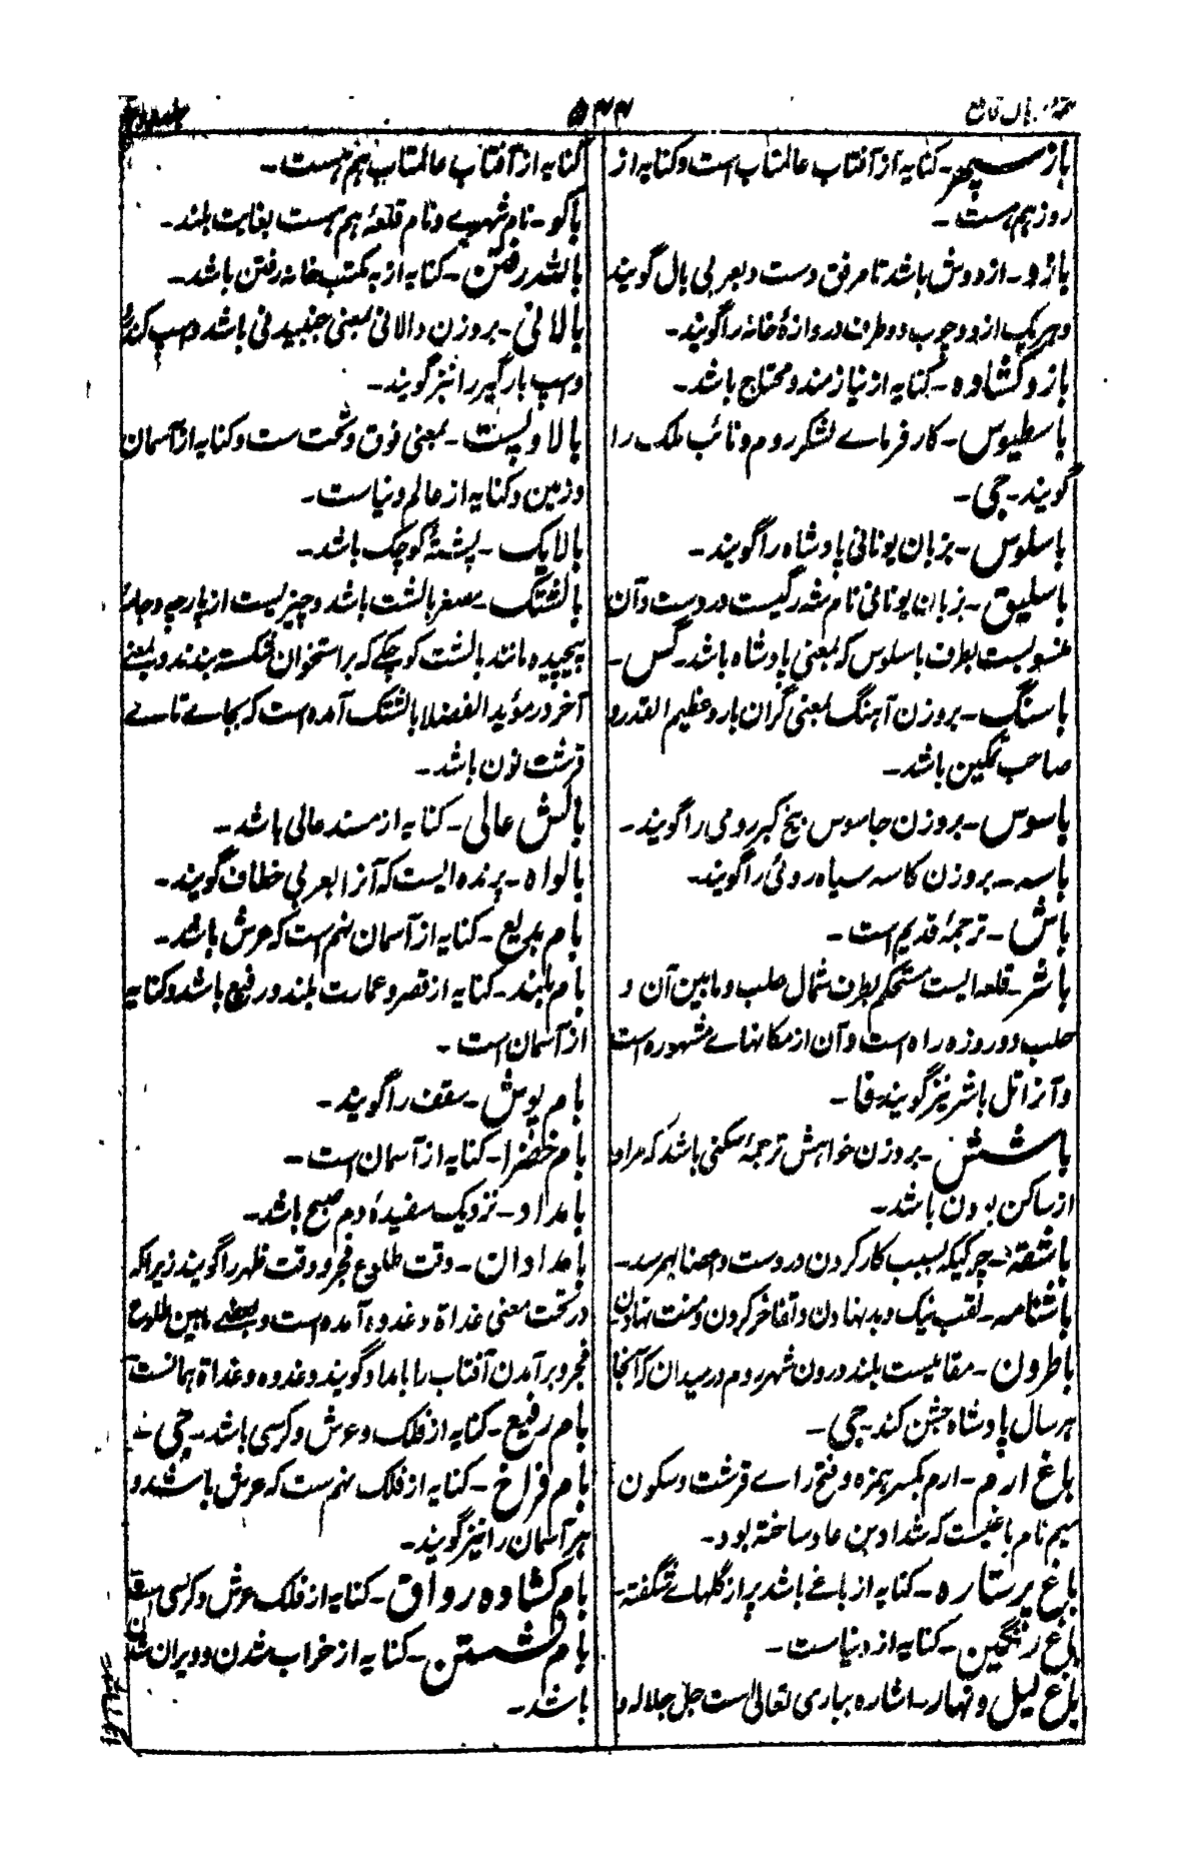 تتمهٔ برہان قاطع
۵۴۴
باز سپہر۔ کنایہ از آفتاب عالمتاب است و کنایہ از
روز ہم ہست۔
بازو۔ از دوش باشد تا مرفق دست و بعربی بال گویند
و ہر یک از دو چوب دو طرف دروازۂ خانہ را گویند۔
بازو کشادہ۔ کنایہ از نیازمند و محتاج باشد۔
باسطیوس۔ کارفرماے لشکر روم و نائب ملک را
گویند۔ جی۔
باسلوس۔ بزبان یونانی پادشاہ را گویند۔
باسلیق۔ بزبان یونانی نام شہ رگیست در دست و آن
منسوبست بطرف باسلوس کہ بمعنی پادشاہ باشد۔ گس۔
باسنگ۔ بروزن آہنگ بمعنی گران بار و عظیم القدر و
صاحب تمکین باشد۔
باسوس۔ بروزن جاسوس بیخ کبر رومی را گویند۔
باسہ۔ بروزن کاسہ سیاہ روئی را گویند۔
باش۔ ترجمۂ قدیم است۔
باشر۔ قلعہ ایست مستحکم بطرف شمال حلب و مابین آن و
حلب دو روزہ راہ است و آن از مکانہاے مشہورہ است
و آنرا تل باشر نیز گویند۔ قا۔
باشش۔ بروزن خواہش ترجمۂ سکنی باشد کہ مراد
از ساکن بودن باشد۔
باشقہ۔ چرکیکہ بسبب کار کردن در دست و اعضا بہمرسد۔
باشنامہ۔ لقب نیک و بد نہادن و تفاخر کردن و منت نہادن
باطرون۔ مقامیست بلند درون شہر روم در میدان کہ آنجا
ہر سال پادشاہ جشن کند۔ جی۔
باغ ارم۔ ارم بکسر ہمزہ و فتح راے قرشت و سکون
میم نام باغیست کہ شداد بن عاد ساختہ بود۔
باغ پرستارہ۔ کنایہ از باغے باشد پر از گلہاے شگفتہ۔
باغ رنگین۔ کنایہ از دنیاست۔
باغ لیل و نہار۔ اشارہ بباری تعالی است جل جلالہ و
کنایہ از آفتاب عالمتاب ہم ہست۔
باکو۔ نام شہریے و نام قلعۂ ہم ہست بغایت بلند۔
باللہ رفتن۔ کنایہ از بہ مکتب خانہ رفتن باشد۔
بالانی۔ بروزن دالانی بمعنی جنبیدنی باشد و اسپ کندرو
و اسپ بارگیر را نیز گویند۔
بالا و پست۔ بمعنی فوق و تحت ست و کنایہ از آسمان
و زمین و کنایہ از عالم دنیاست۔
بالایک۔ پشتۂ کوچک باشد۔
بالشتک۔ مصغر بالشت باشد و چیزیست از پارچہ و جامہ
پیچیدہ مانند بالشت کوچکے کہ بر استخوان شکستہ بندند و بمعنی
آخر در مؤید الفضلا بالشتک آمدہ است کہ بجاے تاے
قرشت نون باشد۔
بالش عالی۔ کنایہ از مسند عالی باشد۔
بالواہ۔ پرندہ ایست کہ آنرا بعربی خطاف گویند۔
بام بدیع۔ کنایہ از آسمان نہم است کہ عرش باشد۔
بام بلند۔ کنایہ از قصر و عمارت بلند و رفیع باشد و کنایہ
از آسمان است۔
بام پوش۔ سقف را گویند۔
بام خضرا۔ کنایہ از آسمان است۔
بامداد۔ نزدیک سفیدۂ دم صبح باشد۔
بامدادان۔ وقت طلوع فجر و وقت ظہر را گویند زیراکہ
در تحت معنی غداۃ و غدوہ آمدہ است و بعضے مابین طلوع
فجر و برآمدن آفتاب را بامداد گویند و غدوہ و غداۃ ہمانست
بام رفیع۔ کنایہ از فلک و عرش و کرسی باشد۔ جی۔
بام فراخ۔ کنایہ از فلک نہم ست کہ عرش باشد و
ہر آسمان را نیز گویند۔
بام کشادہ رواق۔ کنایہ از فلک عرش و کرسی
بام نشستن۔ کنایہ از خراب شدن و ویران شدن
باشد۔